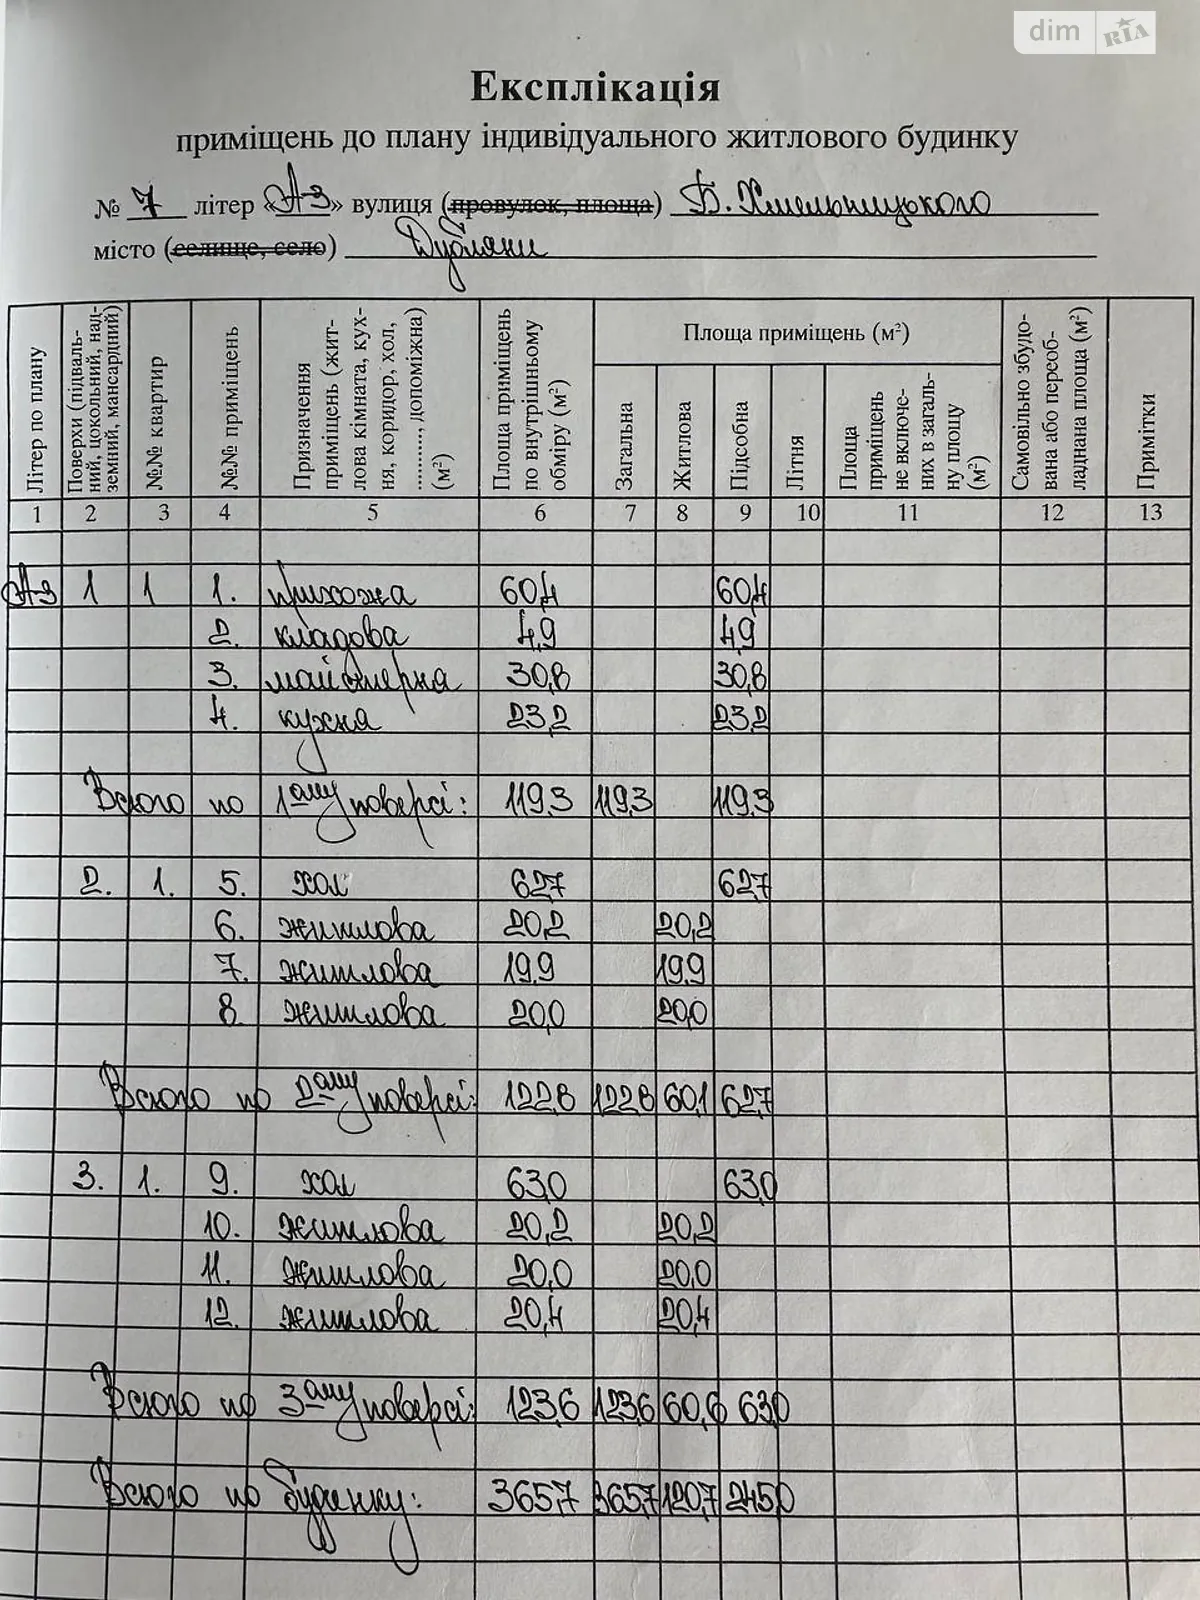 dim RIA
Експлікація
приміщень до плану індивідуального житлового будинку
№ 7 літер «А-3» вулиця (провулок, площа) Б. Хмельницького
місто (селище, село) Дубляни
Літер по плану
Поверхи (підваль-
ний, цокольний, над-
земний, мансардний)
№№ квартир
№№ приміщень
Призначення
приміщень (жит-
лова кімната, кух-
ня, коридор, хол,
..........., допоміжна)
(м²)
Площа приміщень
по внутрішньому
обміру (м²)
Площа приміщень (м²)
Загальна
Житлова
Підсобна
Літня
Площа
приміщень
не включе-
них в загаль-
ну площу
(м²)
Самовільно збудо-
вана або переоб-
ладнана площа (м²)
Примітки
1 2 3 4 5 6 7 8 9 10 11 12 13
А-3 1 1 1. прихожна 60,4 60,4
2. кладова 4,9 4,9
3. майстерна 30,8 30,8
4. кухня 23,2 23,2
Всього по 1ому поверсі: 119,3 119,3 119,3
2. 1. 5. хол 62,7 62,7
6. житлова 20,2 20,2
7. житлова 19,9 19,9
8. житлова 20,0 20,0
Всього по 2ому поверсі: 122,8 122,8 60,1 62,7
3. 1. 9. хол 63,0 63,0
10. житлова 20,2 20,2
11. житлова 20,0 20,0
12. житлова 20,4 20,4
Всього по 3ому поверсі: 123,6 123,6 60,6 63,0
Всього по будинку: 365,7 365,7 120,7 245,0